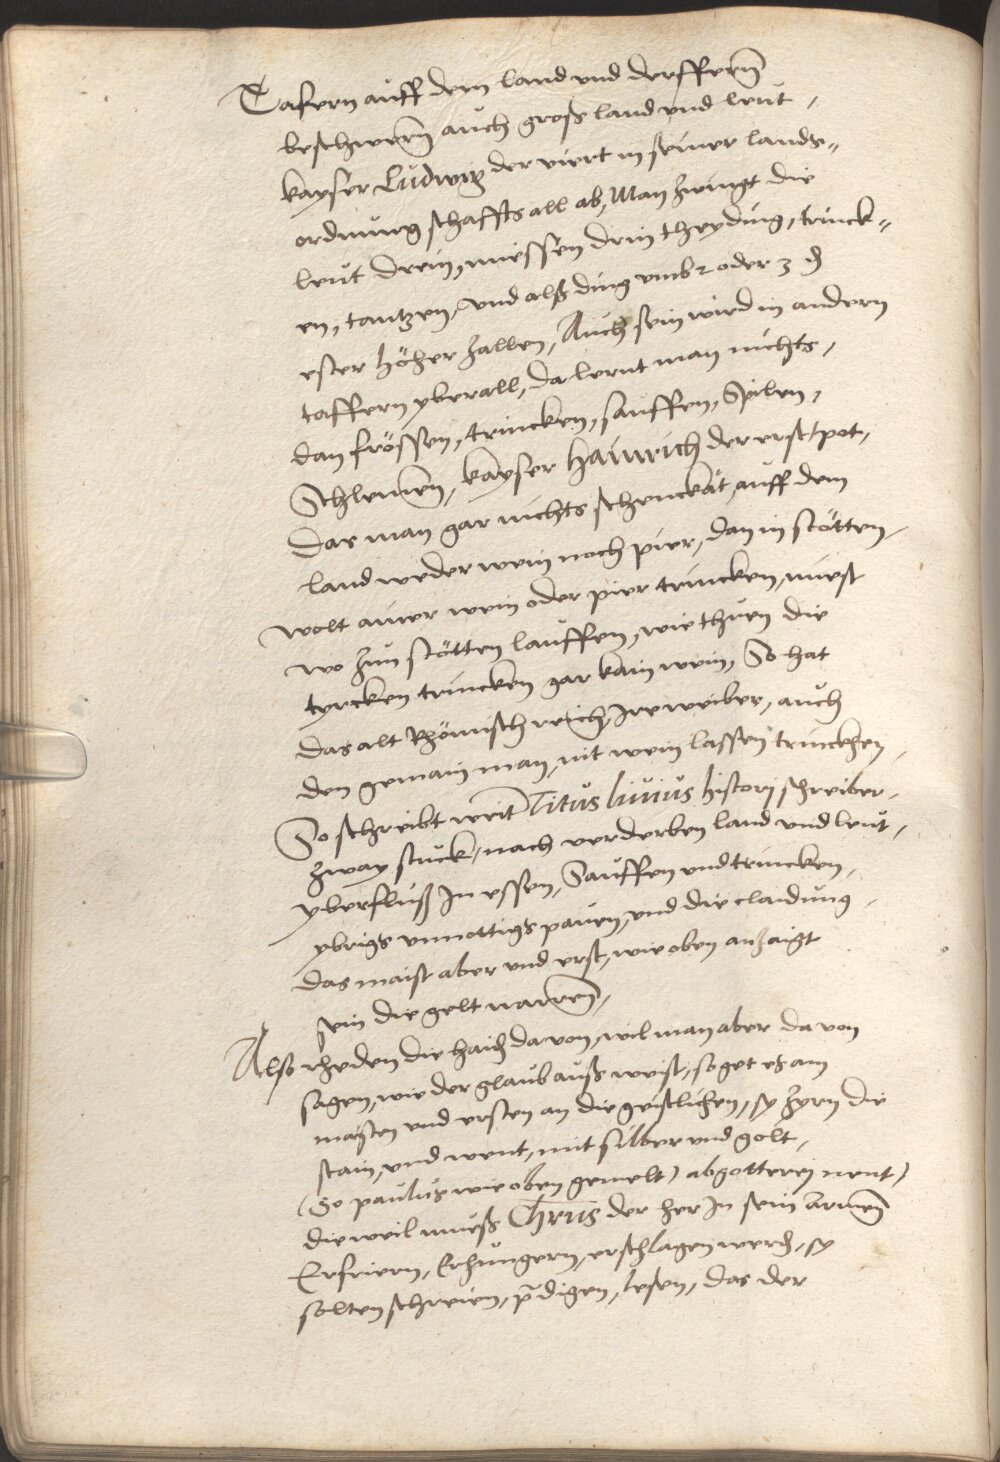 Tafern auff dem land und derffern
beschwern auch gross land und leut,
kayser Ludwig der viert in seiner lands-
ordnung schaffts all ab, Man zwingt die
leut drein, miessen drin theyding, trinck-
en, tantzen, und alss ding umb 2 oder 3 ₰
ester höher zallen, Auch sein wird in andern
taffern yberall, da lernt man nichts,
dan frössen, trincken, sauffen, Spilen,
Schlemen, kayser Hainrich der erst pot,
das man gar nichts schenckät auff dem
land weder wein noch pier, dan in stötten,
wolt ainer wein oder pier trincken, miest
wo zun stötten lauffen, wie thuen die
tyrcken trincken gar kain wein, So hat
das alt Römisch reich, Ire weiber, auch
den gemain man, nit wein lassen trinckhen,
So schreibt weit Titus livius history schreiber,
zway stuck, nach verderben land und leut,
yberfluss In essen, Sauffen und trincken,
ybrigs unnottigs pauen, und die claidung,
das maist aber und erst, wie oben anzaigt
sein die gelt narren,
Also rheden die haidn davon, wil man aber da von
sagen, wie der glaub auss weist, so get es am
maisten und ersten an die geistlichen, sy zyrn die
stain, und went, mit silber und golt,
(So paulus wie oben gemelt) abgotterej nent)
die weil muess Chrus der her In sein armen
Erfriern, Erhungern, erschlagen werdn, sy
solten schreien, predigen, lesen, das der